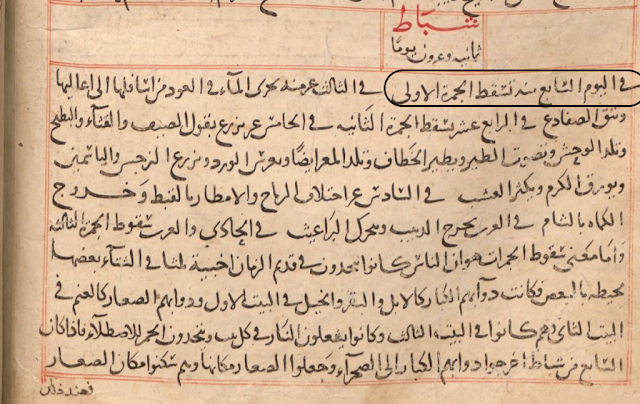 شباط
ثمانيه وعشرون يومًا
في اليوم السابع منه تسقط الجمرة الاولى في الثالث عشر منه يجرى المآء في العود من اسافلها الى اعاليها
وتنق الضفادع في الرابع عشر تسقط الجمرة الثانيه في الخامس عشر يزرع بقول الصيف والقثآء والبطيخ
وتلد الوحش وتصوت الطير ويطير الخطاف وتلد المعز ايضًا ويغرس الورد ويزرع النرجس والياسمين
ويورق الكرم ويكثر العشب في السادس عشر اختلاف الرياح والامطار بالقبط وخروج
الكماه بالشام في العشرين يخرج الدبيب ويتحرك البراغيث في الحادي والعشرين سقوط الجمرة الثالثه
واما معنى سقوط الجمرات هو ان الناس كانوا يتخذون في قديم الزمان اخبية ثلثا في الشتآء بعضها
محيطه بالبعض فكانت دوآبهم الكبار كالابل والبقر والخيل في البيت الاول ودوابهم الصغار كالغنم في
البيت الثاني وهم كانوا في البيت الثالث وكانوا يشعلون النار في كل بيت ويتخذون الجمر للاصطلآء فاذا كان
السابع من شباط اخرجوا دوابهم الكبار الى الصحرآء وجعلوا الصغار مكانها وهم سكنوا مكان الصغار